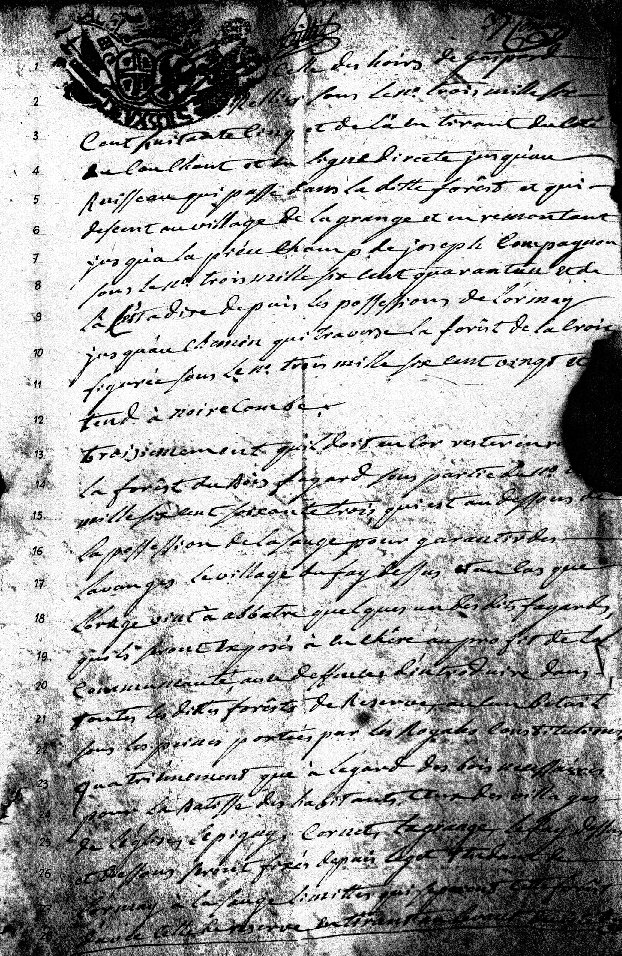 celle des hoirs de Gaspard
sous le no. trois mille six
Cent soixante cinq et de là en tirant du Côté
du Couchant et en ligne directe jusqu'au
Ruisseau qui passe dans la ditte forêst et qui
descent au village de la grange et en remontant
jusqu'a la pièce Champ de joseph Compagnon
sous le no. trois mille six cent quarante et de
là C'est a dire depuis les possessions de Lormay
jusqu'au Chemin qui traverse la forêst de la Croix
figurée sous le no. trois mille six cent vingt et
tend à noire Combe.
troisiemement qu'il doit encor rester en
la forêst du Bois fagard sous partie du no.
mille six cent soixante trois, qui est au dessous de
la possession de la sauge pour garantir des
Lavanges le village du fay dessus et au Cas que
L'orage vint à abbatre quelques un des dits fagards,
qu'ils soint Exposés à Enchère au profit de la
Communauté, avec deffences d'introduire dans
toutes les dittes forêsts de Reserve, aucun betail
sous les peines portées par les Royales Constitutions
quatriemement que à l'egard des bois necessaires
pour la Batisse des habitants, Ceux des villages
de l'Eglise, lepigny, Cornets, la grange, le fay dessus
et dessous, seront fixés depuis
Lormay à la sauge limittes qui
celle de reserve en tirant